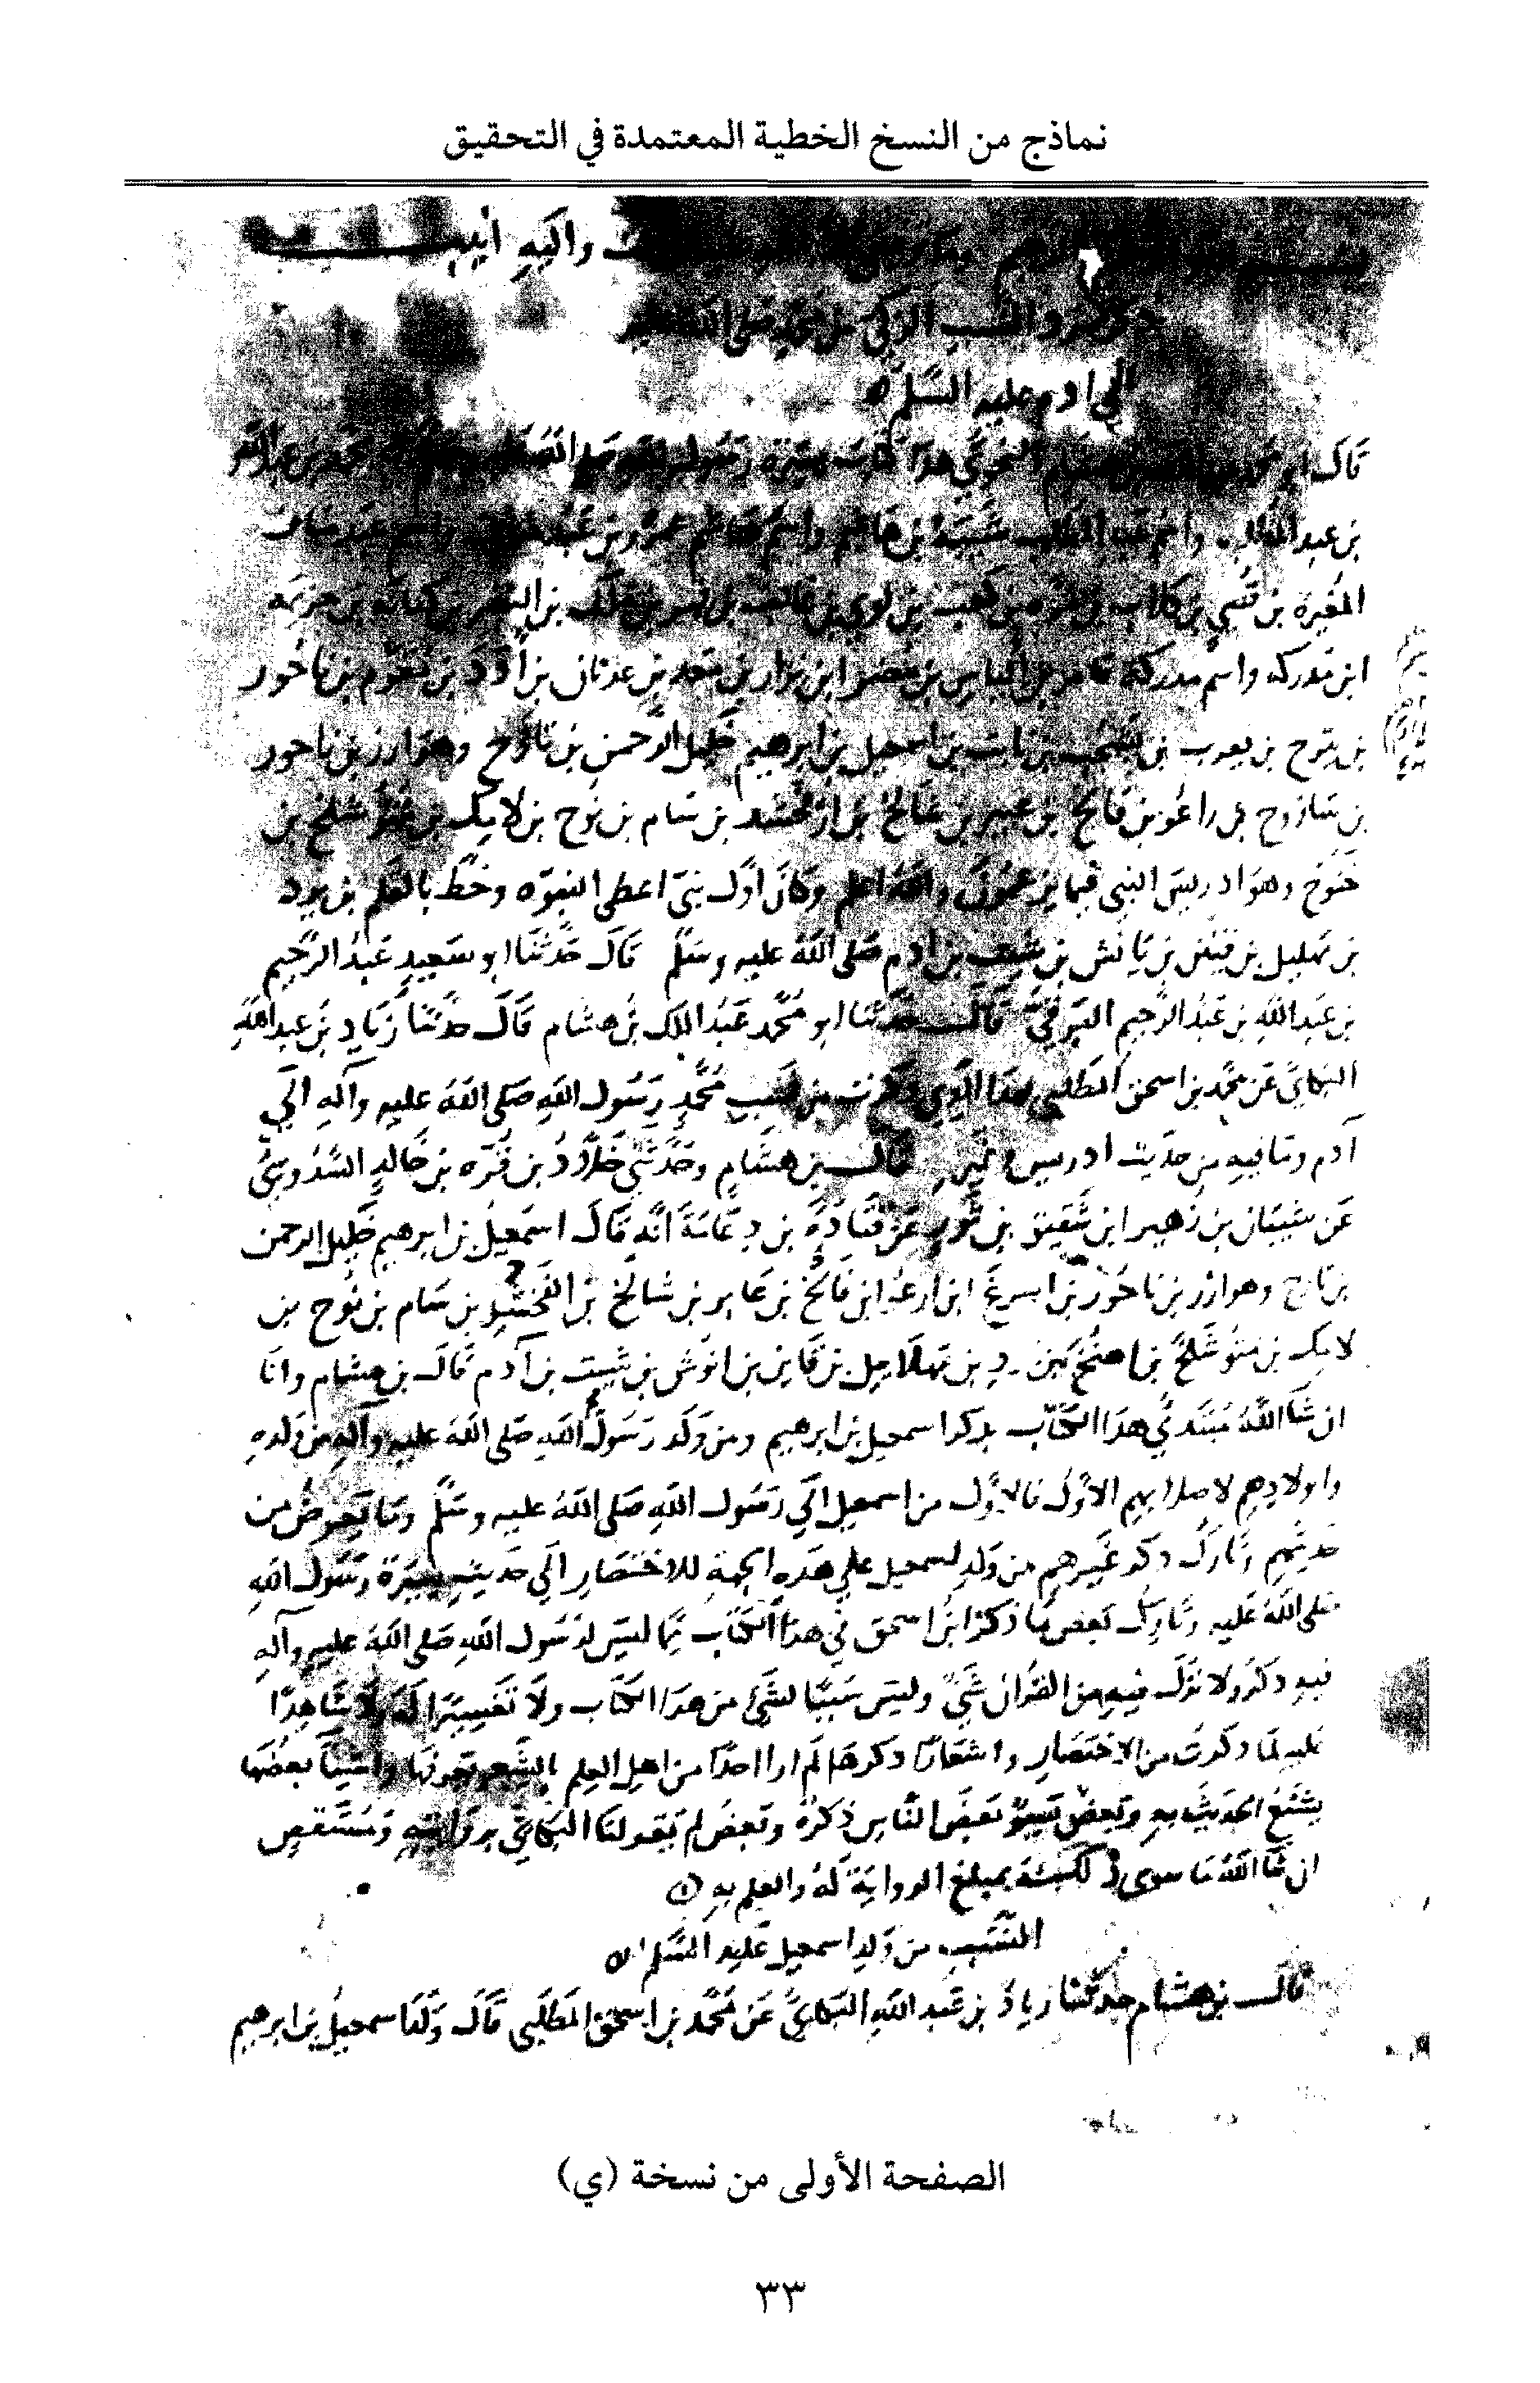 نماذج من النسخ الخطية المعتمدة في التحقيق
واليه انيب
ذكر سرد النسب الزكي من محمد صلى الله عليه
الى ادم عليه السلم
قال ابو محمد بن هشام النحوي هذا كتاب سيرة رسول الله صلى الله محمد بن عبد الله
بن عبد المطلب واسم عبد المطلب شيبة بن هاشم واسم هاشم عمرو بن عبد مناف واسم عبد مناف
المغيرة بن قصي بن كلاب بن مره بن كعب بن لوي بن غالب بن فهر بن مالك بن النضر بن كنانه بن خزيمه
ابن مدركه واسم مدركة عامر بن الياس بن مضر ابن نزار بن معد بن عدنان بن أدد بن مقوم بن ناخور
بن تيرح بن يعرب بن يشجب بن نابت بن اسمعيل بن ابرهيم خليل الرحمن بن تارح وهو ازر بن ناحور
بن ساروح بن راعو بن فالخ بن عيبر بن شالخ بن ارفخشد بن سام بن نوح بن لامك بن متوشلخ بن
خنوخ وهو ادريس النبي فيما يزعمون والله اعلم وكان اول نبي اعطى النبوه وخط بالقلم بن يرد
بن مهليل بن قينن بن يانش بن شيث بن ادم صلى الله عليه وسلم قال حدثنا ابو سعيد عبد الرحيم
بن عبد الله بن عبد الرحيم البرقي قال حدثنا ابو محمد عبد الملك بن هشام قال حدثنا زياد بن عبد الله
البكاي عن محمد بن اسحق المطلبي بهذا الذي ذكرت من نسب محمد رسول الله صلى الله عليه وآله الى
آدم وما فيه من حديث ادريس وغيره قال بن هشام وحدثني خلاد بن قره بن خالد السدوسي
عن شيبان بن زهير ابن شقيق بن ثور عن قتادة بن دعامة انه قال اسمعيل بن ابرهيم خليل الرحمن
بن تارح وهو ازر بن ناحور بن اسرغ ابن ارغو ابن فالخ بن عابر بن شالخ بن الفخشد بن سام بن نوح بن
لامك بن متوشلخ بن اهنخ بن يرد بن مهلاميل بن قاين بن انوش بن شيث بن آدم قال بن هشام وانا
ان شا الله مبتدي هذا الكتاب بذكر اسمعيل بن ابرهيم ومن ولد رسول الله صلى الله عليه وآله من ولده
واولادهم لاصلابهم الاول فالاول من اسمعيل الى رسول الله صلى الله عليه وسلم وما يعرض من
حديثهم وتارك ذكر غيرهم من ولد اسمعيل على هذه الجهة للاختصار الى حديث سيرة رسول الله
صلى الله عليه وتارك بعض ما ذكر ابن اسحق في هذا الكتاب مما ليس لرسول الله صلى الله عليه وآله
فيه ذكر ولا نزل فيه من القران شي وليس سببا لشي من هذا الكتاب ولا تفسيرا له ولا شاهدا
عليه لما ذكرت من الاختصار واشعارا ذكرها لم ار احدا من اهل العلم بالشعر يعرفها واشيا بعضها
يشنع الحديث به وبعض يسو بعض الناس ذكره وبعض لم يقر لنا البكاي بروايته ومستقص
ان شا الله ما سوى ذلك منه بمبلغ الرواية له والعلم به
النسب من ولد اسمعيل عليه السلم
قال بن هشام حدثنا زياد بن عبد الله البكاي عن محمد بن اسحق المطلبي قال ولد اسمعيل بن ابرهيم
الصفحة الأولى من نسخة (ي)
٣٣